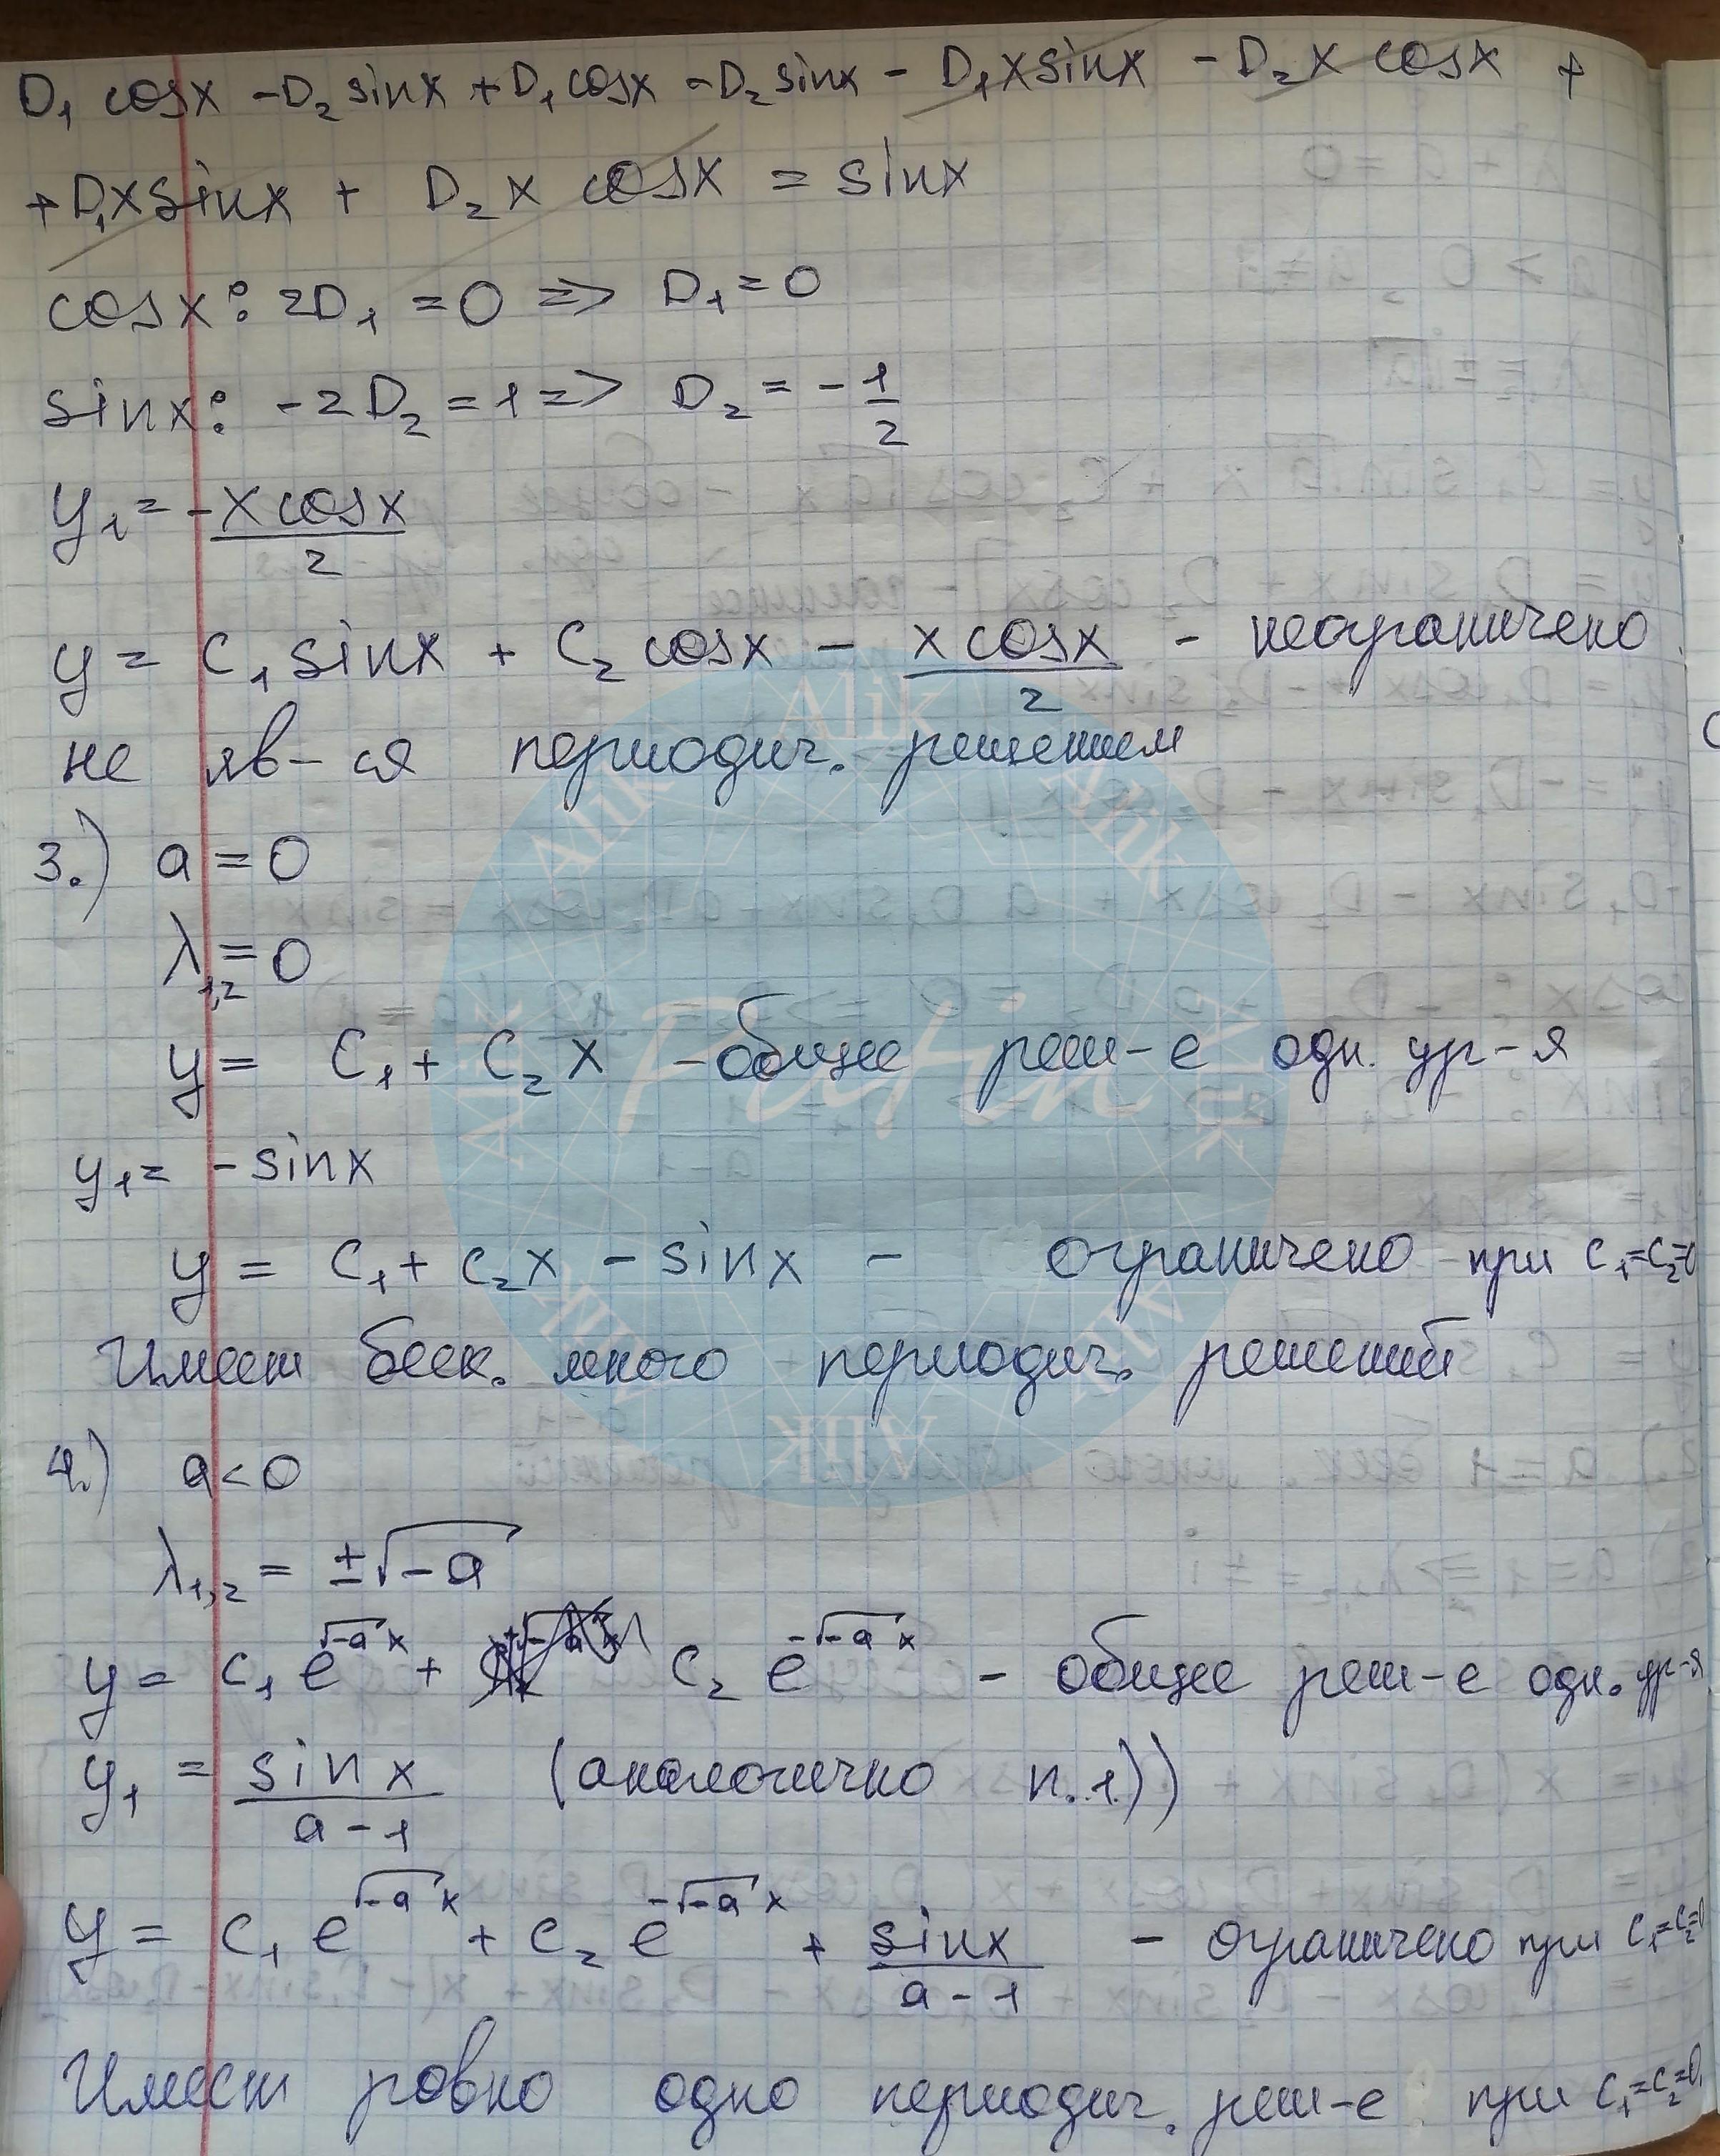 D₁ cosx - D₂ sinx + D₁ cosx - D₂ sinx - D₁ x sinx - D₂ x cosx +
+ D₁ x sinx + D₂ x cosx = sinx
cosx: 2D₁ = 0 => D₁ = 0
sinx: -2D₂ = 1 => D₂ = -1/2
y₁ = -x cosx/2
y = C₁ sinx + C₂ cosx - x cosx/2 - неограничено
не яв-ся периодич. решением
3.) a = 0
λ₁,₂ = 0
y = C₁ + C₂ x - общее реш-е одн. ур-я
y₁ = -sinx
y = C₁ + C₂ x - sinx - ограничено при C₁=C₂=0
Имеет беск. много периодич. решений
4.) a < 0
λ₁,₂ = ±√-a
y = C₁ e^(√-a x) + C₂ e^(-√-a x) - общее реш-е одн. ур-я
y₁ = sinx/(a-1) (аналогично п.1))
y = C₁ e^(√-a x) + C₂ e^(-√-a x) + sinx/(a-1) - ограничено при C₁=C₂=0
Имеет ровно одно периодич. реш-е при C₁=C₂=0.
Alik
Alik
Alik
Alik
Alik
Alik
Alik
Alik